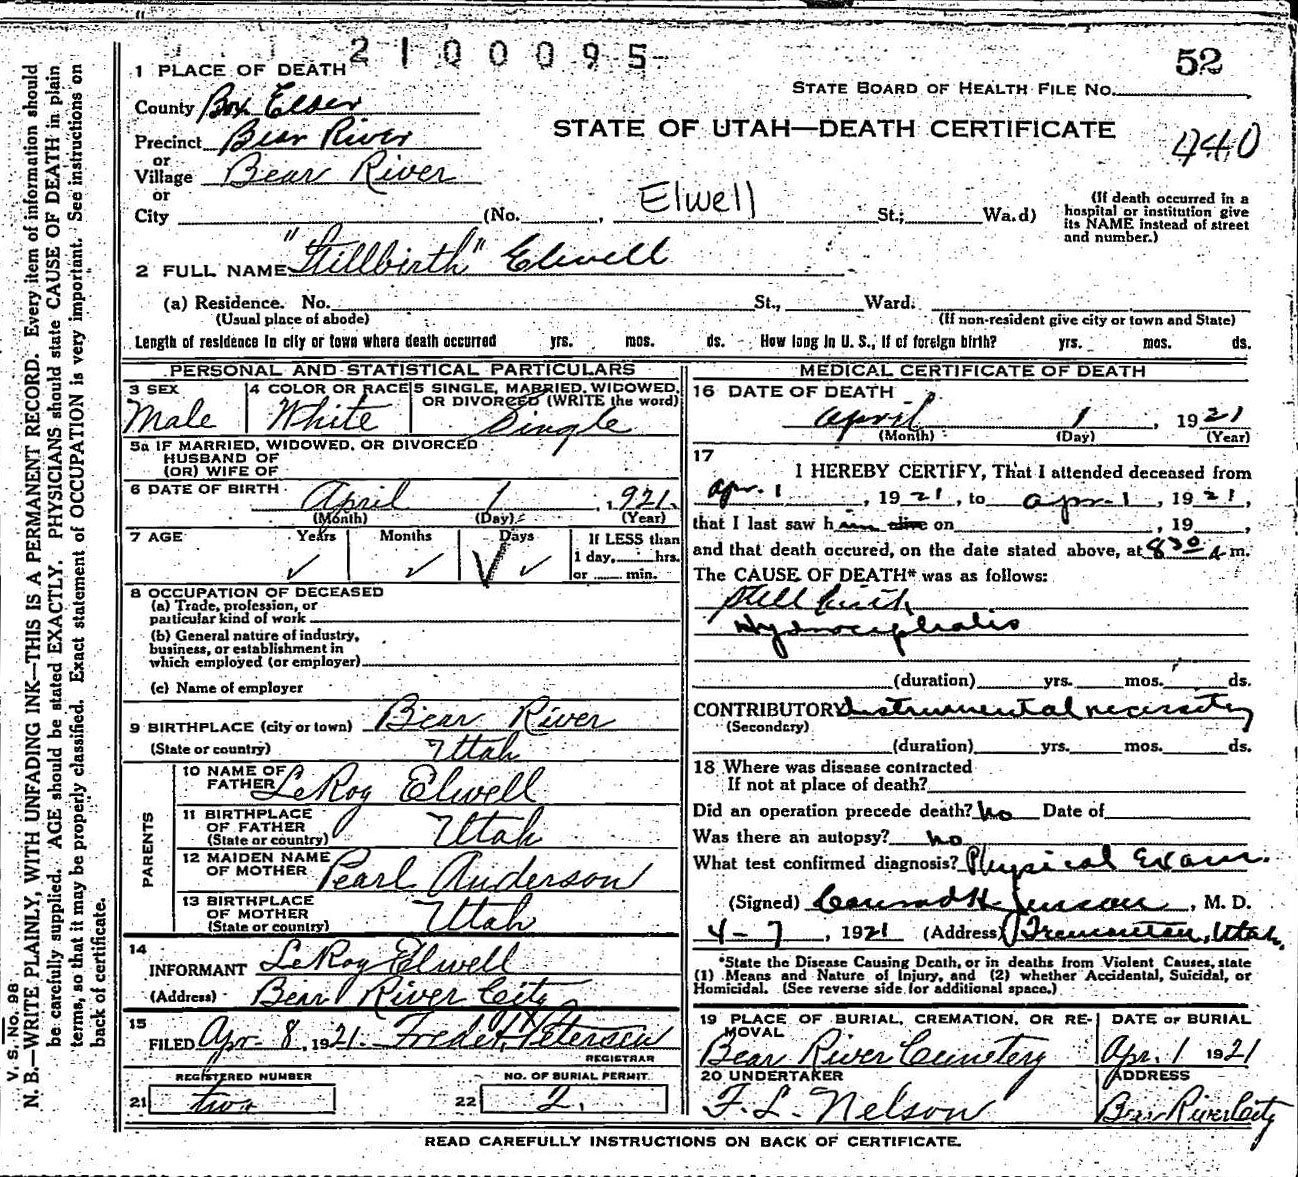 2100095
52
1 PLACE OF DEATH
STATE BOARD OF HEALTH FILE No.
County Box Elder
STATE OF UTAH—DEATH CERTIFICATE
440
Precinct Bear River
or
Village Bear River
or
City (No. , Elwell St.; Wa.d)
(If death occurred in a hospital or institution give its NAME instead of street and number.)
2 FULL NAME "Stillbirth" Elwell
(a) Residence. No. St., Ward.
(Usual place of abode) (If non-resident give city or town and State)
Length of residence in city or town where death occurred yrs. mos. ds. How long in U. S., if of foreign birth? yrs. mos. ds.
PERSONAL AND STATISTICAL PARTICULARS
3 SEX
Male
4 COLOR OR RACE
White
5 SINGLE, MARRIED, WIDOWED, OR DIVORCED (WRITE the word)
Single
5a IF MARRIED, WIDOWED, OR DIVORCED
HUSBAND OF
(OR) WIFE OF
6 DATE OF BIRTH
April 1 , 1921.
(Month) (Day) (Year)
7 AGE Years Months Days If LESS than
✓ ✓ V ✓ 1 day, hrs.
or min.
8 OCCUPATION OF DECEASED
(a) Trade, profession, or
particular kind of work
(b) General nature of industry,
business, or establishment in
which employed (or employer)
(c) Name of employer
9 BIRTHPLACE (city or town) Bear River
(State or country) Utah
PARENTS
10 NAME OF FATHER LeRoy Elwell
11 BIRTHPLACE OF FATHER
(State or country) Utah
12 MAIDEN NAME OF MOTHER Pearl Anderson
13 BIRTHPLACE OF MOTHER
(State or country) Utah
14
INFORMANT LeRoy Elwell
(Address) Bear River City
15
FILED Apr- 8, 1921. Freder. Petersen
REGISTRAR
REGISTERED NUMBER NO. OF BURIAL PERMIT.
21 two 22 2.
MEDICAL CERTIFICATE OF DEATH
16 DATE OF DEATH
April 1 , 1921
(Month) (Day) (Year)
17
I HEREBY CERTIFY, That I attended deceased from
Apr. 1 , 1921, to apr-1 , 1921,
that I last saw him alive on , 19 ,
and that death occured, on the date stated above, at 8 30 a m.
The CAUSE OF DEATH* was as follows:
Still birth
Hydrocephalis
(duration) yrs. mos. ds.
CONTRIBUTORY Instrumental necessity
(Secondary)
(duration) yrs. mos. ds.
18 Where was disease contracted
If not at place of death?
Did an operation precede death? No Date of
Was there an autopsy? no
What test confirmed diagnosis? Physical Exam.
(Signed) Conrad H. Jenson , M. D.
4-7 , 1921 (Address) Tremonton, Utah.
*State the Disease Causing Death, or in deaths from Violent Causes, state
(1) Means and Nature of Injury, and (2) whether Accidental, Suicidal, or
Homicidal. (See reverse side for additional space.)
19 PLACE OF BURIAL, CREMATION, OR REMOVAL
Bear River Cemetery
DATE OF BURIAL
Apr. 1 1921
20 UNDERTAKER
F. L. Nelson
ADDRESS
Bear River City
READ CAREFULLY INSTRUCTIONS ON BACK OF CERTIFICATE.
V. S. No. 98
N. B.—WRITE PLAINLY, WITH UNFADING INK—THIS IS A PERMANENT RECORD. Every item of information should
be carefully supplied. AGE should be stated EXACTLY. PHYSICIANS should state CAUSE OF DEATH in plain
terms, so that it may be properly classified. Exact statement of OCCUPATION is very important. See instructions on
back of certificate.